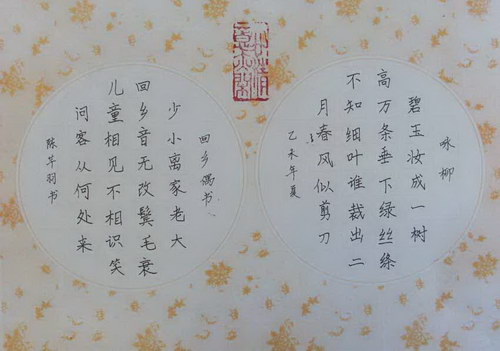 咏柳
碧玉妆成一树
高万条垂下绿丝绦
不知细叶谁裁出二
月春风似剪刀
乙未年夏
回乡偶书
少小离家老大
回乡音无改鬓毛衰
儿童相见不相识笑
问客从何处来
陈羽书